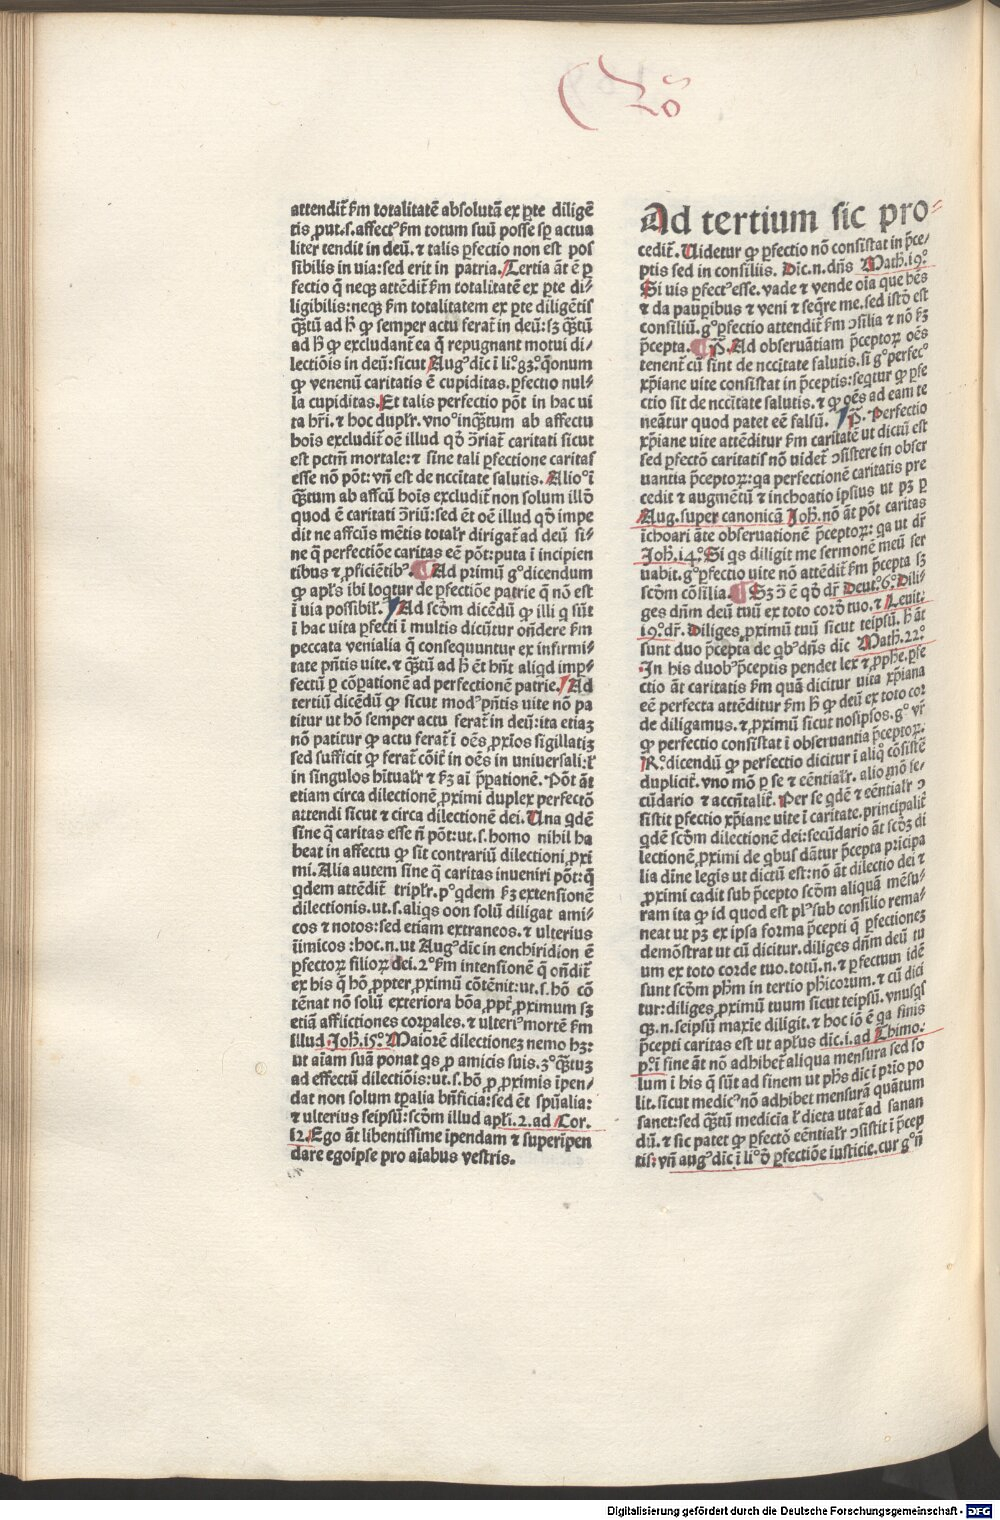 attendit̃ ẜm totalitatẽ absolutã ex ꝑte diligẽ
tis ꝓut.s.affectꝰ ẜm totum suũ posse sꝑ actua
liter tendit in deũ. ⁊ talis ꝑfectio non est pos
sibilis in via: sed erit in patria. Tertia ãt ẽ ꝑ
fectio q̃ neqꝫ attẽdit̃ ẜm totalitatẽ ex ꝑte di⸗
ligibilis: neqꝫ ẜm totalitatem ex ꝑte diligẽtis
q̃ꝫtũ ad h̃ ꝙ semper actu ferat̃ in deũ: sꝫ q̃ꝫtũ
ad h̃ ꝙ excludant̃ ea q̃ repugnant motui di⸗
lectiõis in deũ: sicut Augꝰ dic̃ ĩ li.º 83.º q̃onum
ꝙ venenũ caritatis ẽ cupiditas. ꝑfectio nul⸗
la cupiditas. Et talis perfectio põt in hac vi
ta hr̃i. ⁊ hoc duplr̃. vno.º inq̃ꝫtum ab affectu
hoĩs excludit̃ oẽ illud qð ↄ̃riat̃ caritati sicut
est pctm̃ mortale: ⁊ sine tali ꝑfectione caritas
esse nõ põt: vñ est de nccitate salutis. Alio.º ĩ
q̃ꝫtum ab affcũ hoĩs excludit̃ non solum illð
quod ẽ caritati ↄ̃riũ: sed ẽt oẽ illud qð impe
dit ne affcũs mẽtis totalr̃ dirigat̃ ad deũ si⸗
ne q̃ perfectiõe caritas eẽ põt: puta ĩ incipien
tibus ⁊ ꝓficiẽtibꝰ. Ad primũ gº dicendum
ꝙ apl̃s ibi loqtur de ꝑfectiõe patrie q̃ nõ est
ĩ via possibil̃. Ad scðm dicẽdũ ꝙ illi q̃ sũt
ĩ hac vita ꝑfecti ĩ multis dicũtur oñdere ẜm
peccata venialia q̃ consequuntur ex infirmi⸗
tate pñtis vite. ⁊ q̃ꝫtũ ad h̃ ẽt hñt aliqd imꝑ⸗
fectũ ꝑ cõꝑationẽ ad perfectionẽ patrie. Ad
tertiũ dicẽdũ ꝙ sicut modꝰ pñtis vite nõ pa
titur ut hõ semper actu ferat̃ in deũ: ita etiaꝫ
nõ patitur ꝙ actu ferat̃ ĩ oẽs ꝓxĩos sigillatiꝫ
sed sufficit ꝙ ferat̃ cõit̃ in oẽs in universali: ł
in singulos hĩtualr̃ ⁊ ẜꝫ aĩ p̃ꝑationẽ. Põt ãt
etiam circa dilectionẽ ꝓximi duplex perfectõ
attendi sicut ⁊ circa dilectionẽ dei. Una qdẽ
sine q̃ caritas esse ñ põt: ut.s. homo nihil ha
beat in affectu ꝙ sit contrariũ dilectioni ꝓxi
mi. Alia autem sine q̃ caritas inveniri põt: q̃
qdem attẽdit̃ triplr̃. p.º qdem ẜꝫ extensionẽ
dilectionis. ut.s. aliqs oon solũ diligat ami⸗
cos ⁊ notos: sed etiam extraneos. ⁊ ulterius
ĩimicos : hoc.n. ut Augꝰ dic̃ in enchiridion ẽ
ꝑfectoꝝ filioꝝ dei. 2.º ẜm intensionẽ q̃ oñdit̃
ex his q̃ hõ ꝓpter ꝓximũ cõtẽnit: ut.s. hõ cõ
tẽnat nõ solũ exteriora bõa ꝓpt̃ ꝓximum sꝫ
etiã afflictiones corꝑales. ⁊ ulteriꝰ mortẽ ẜm
illud Joh̃. 15.º Maiorẽ dilectioneꝫ nemo hꝫ:
ut aĩam suã ponat qs ꝓ amicis suis. 3.º q̃ꝫtuꝫ
ad effectũ dilectiõis: ut.s. hõ ꝓ ꝓximis ĩpen⸗
dat non solum tꝑalia bñficia: sed ẽt spũalia:
⁊ ulterius seipsũ: scðm illud apl̃i. 2. ad Cor.
12. Ego ãt libentissime ĩpendam ⁊ superĩpen
dare egoipse pro aĩabus vestris.
Ad tertium sic pro⸗
cedit̃. Uidetur ꝙ ꝑfectio nõ consistat in p̃ce⸗
ptis sed in consiliis. Dic̃.n. dñs Math. 19.º
Si vis ꝑfectꝰ esse. vade ⁊ vende oĩa que hẽs
⁊ da pauꝑibus ⁊ veni ⁊ seq̃re me. sed istð est
consiliũ. gº ꝑfectio attendit̃ ẜm ↄsilia ⁊ nõ ẜꝫ
p̃cepta. P̃. Ad observãtiam p̃ceptoꝝ oẽs
tenent̃ cũ sint de nccitate salutis. si gº perfecº
xp̃iane vite consistat in p̃ceptis: seqtur ꝙ ꝑfe
ctio sit de nccitate salutis. ⁊ ꝙ oẽs ad eam te
neãtur quod patet eẽ falsũ. P̃. Perfectio
xp̃iane vite attẽditur ẜm caritatẽ ut dictũ est
sed ꝑfectõ caritatis nõ videt̃ ↄsistere in obser
uantia p̃ceptoꝝ: qa perfectionẽ caritatis pre
cedit ⁊ augmẽtũ ⁊ inchoatio ipsius ut pꝫ ꝑ
Aug. super canonicã Joh̃. nõ ãt põt caritas
ĩchoari ãte observationẽ p̃ceptoꝝ: qa ut dr̃
Joh̃. 14.º Si qs diligit me sermonẽ meũ ser
vabit. gº ꝑfectio vite nõ attẽdit̃ ẜm p̃cepta sꝫ
scðm cõsilia. Sꝫ ↄ̃ ẽ qð dr̃ Deut.º 6.º Dili⸗
ges dñm deũ tuũ ex toto corð tuo. ⁊ Levit:
19.º dr̃. Diliges ꝓximũ tuũ sicut teipsũ. h̃ ãt
sunt duo p̃cepta de qbꝰ dñs dic̃ Math. 22.º
In his duobꝰ p̃ceptis pendet lex ⁊ ꝓphe. ꝑfe
ctio ãt caritatis ẜm quã dicitur vita xp̃iana
eẽ perfecta attẽditur ẜm h̃ ꝙ deũ ex toto cor
de diligamus. ⁊ ꝓximũ sicut nosipsos. gº vr̃
ꝙ perfectio consistat ĩ observantia p̃ceptoꝝ.
R.º dicendũ ꝙ perfectio dicitur ĩ aliq̃ cõsistẽ
duplicit̃. vno mõ ꝑ se ⁊ eẽntialr̃. alio mõ se⸗
cũdario ⁊ accñtalit̃. Per se qdẽ ⁊ eẽntialr̃ ↄ
sistit ꝑfectio xp̃iane vite ĩ caritate. principalit̃
qdẽ scðm dilectionẽ dei: secũdario ãt scðꝫ di
lectionẽ ꝓximi de qbus dãtur p̃cepta pricipa
lia dĩne legis ut dictũ est: nõ ãt dilectio dei ⁊
ꝓximi cadit sub p̃cepto scðm aliquã mẽsu⸗
ram ita ꝙ id quod est plꝰ sub consilio rema⸗
neat ut pꝫ ex ipsa forma p̃cepti q̃ ꝑfectioneꝫ
demõstrat ut cũ dicitur. diliges dñm deũ tu
um ex toto corde tuo. totũ.n. ⁊ ꝑfectum idẽ
sunt scðm ph̃m in tertio ph̃icorum. ⁊ cũ dici
tur: diliges ꝓximũ tuum sicut teipsũ. vnusqs
qꝫ.n. seipsũ maxĩe diligit. ⁊ hoc iõ ẽ qa finis
p̃cepti caritas est ut apl̃us dic. i. ad Thimo.
p.º ĩ fine ãt nõ adhibet̃ aliqua mensura sed so
lum ĩ his q̃ sũt ad finem ut ph̃s dic̃ ĩ prĩo po
lit. sicut medicꝰ nõ adhibet mensurã quãtum
sanet: sed q̃ꝫtũ medicia ł dieta utat̃ ad sanan
dũ. ⁊ sic patet ꝙ ꝑfectõ eẽntialr̃ ↄsistit ĩ p̃cep
tis: vñ augꝰ dic̃ ĩ li.º ð ꝑfectiõe iusticie. cur gº ñ
Digitalisierung gefördert durch die Deutsche Forschungsgemeinschaft - DFG